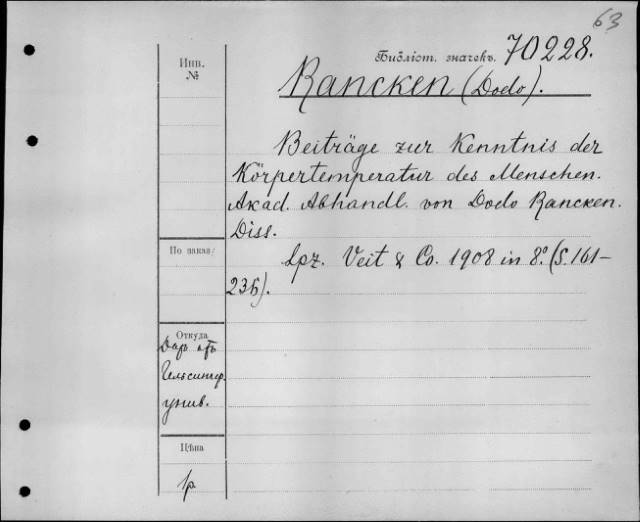 63
Библіот. значекъ. 70228.
Инв.
№
Rancken (Dodo).
Beiträge zur Kenntnis der
Körpertemperatur des Menschen.
Akad. Abhandl. von Dodo Rancken.
Diss.
По заказ:
Lpz. Veit & Co. 1908 in 8º. (S. 161–
236).
Откуда
Даръ отъ
Гельсингф.
унив.
Цѣна
1р